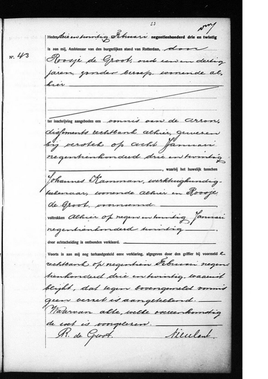 Heden, drie en twintig Februari negentienhonderd drie en twintig
is aan mij, Ambtenaar van den burgerlijken stand van Rotterdam, door
No. 43
Roosje de Groot, oud een en dertig
jaren, zonder beroep, wonende al-
hier
ter inschrijving aangeboden een vonnis van de Arron-
dissements rechtbank alhier, gewezen
bij verstek op acht Januari
negentienhonderd drie en twintig
waarbij het huwelijk tusschen
Johannes, werktuigkundig
teekenaar, wonende alhier en Roosje
de Groot, voornoemd
voltrokken alhier op negen en twintig Januari
negentienhonderd twintig
door echtscheiding is ontbonden verklaard.
Voorts is aan mij overgelegd eene verklaring, afgegeven door den griffier bij voormelde
rechtbank op negentien Februari negen-
tienhonderd drie en twintig, waaruit
blijkt, dat tegen bovengemeld vonnis
geen verzet is aangeteekend.
Waarvan akte, welke overeenkomstig
de wet is voorgelezen.
R. de Groot